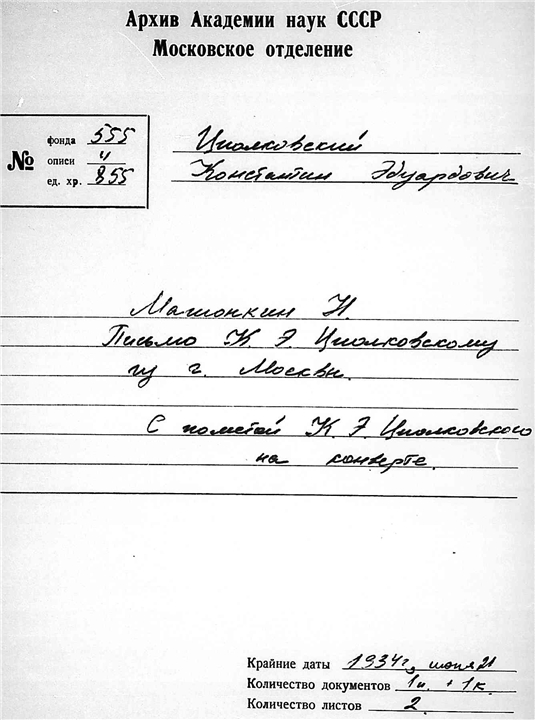 Архив Академии наук СССР
Московское отделение
№
фонда 555
описи 4
ед. хр. 855
Циолковский
Константин Эдуардович
Матюнкин Н.
Письмо К. Э. Циолковскому
из г. Москвы.
С пометой К. Э. Циолковского
на конверте.
Крайние даты 1934г, июня 21
Количество документов 1п. + 1к.
Количество листов 2